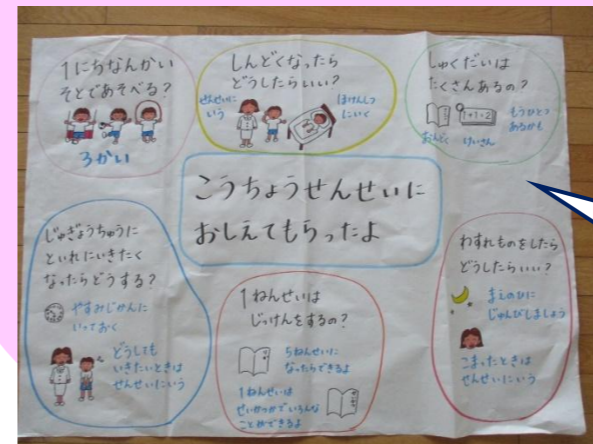 1にちなんかい
そとであそべる?
3かい
しんどくなったら
どうしたらいい?
せんせいに
いう
ほけんしつ
にいく
しゅくだいは
たくさんあるの?
1+1=2
おんどく
けいさん
もうひとつ
あるかも
こうちょうせんせいに
おしえてもらったよ
じゅぎょうちゅうに
といれにいきたく
なったらどうする?
やすみじかんに
いっておく
どうしても
いきたいときは
せんせいにいう
1ねんせいは
じっけんをするの?
5ねんせいに
なったらできるよ
1ねんせいは
せいかつかでいろんな
ことができるよ
わすれものをしたら
どうしたらいい?
まえのひに
じゅんびしましょう
こまったときは
せんせいにいう